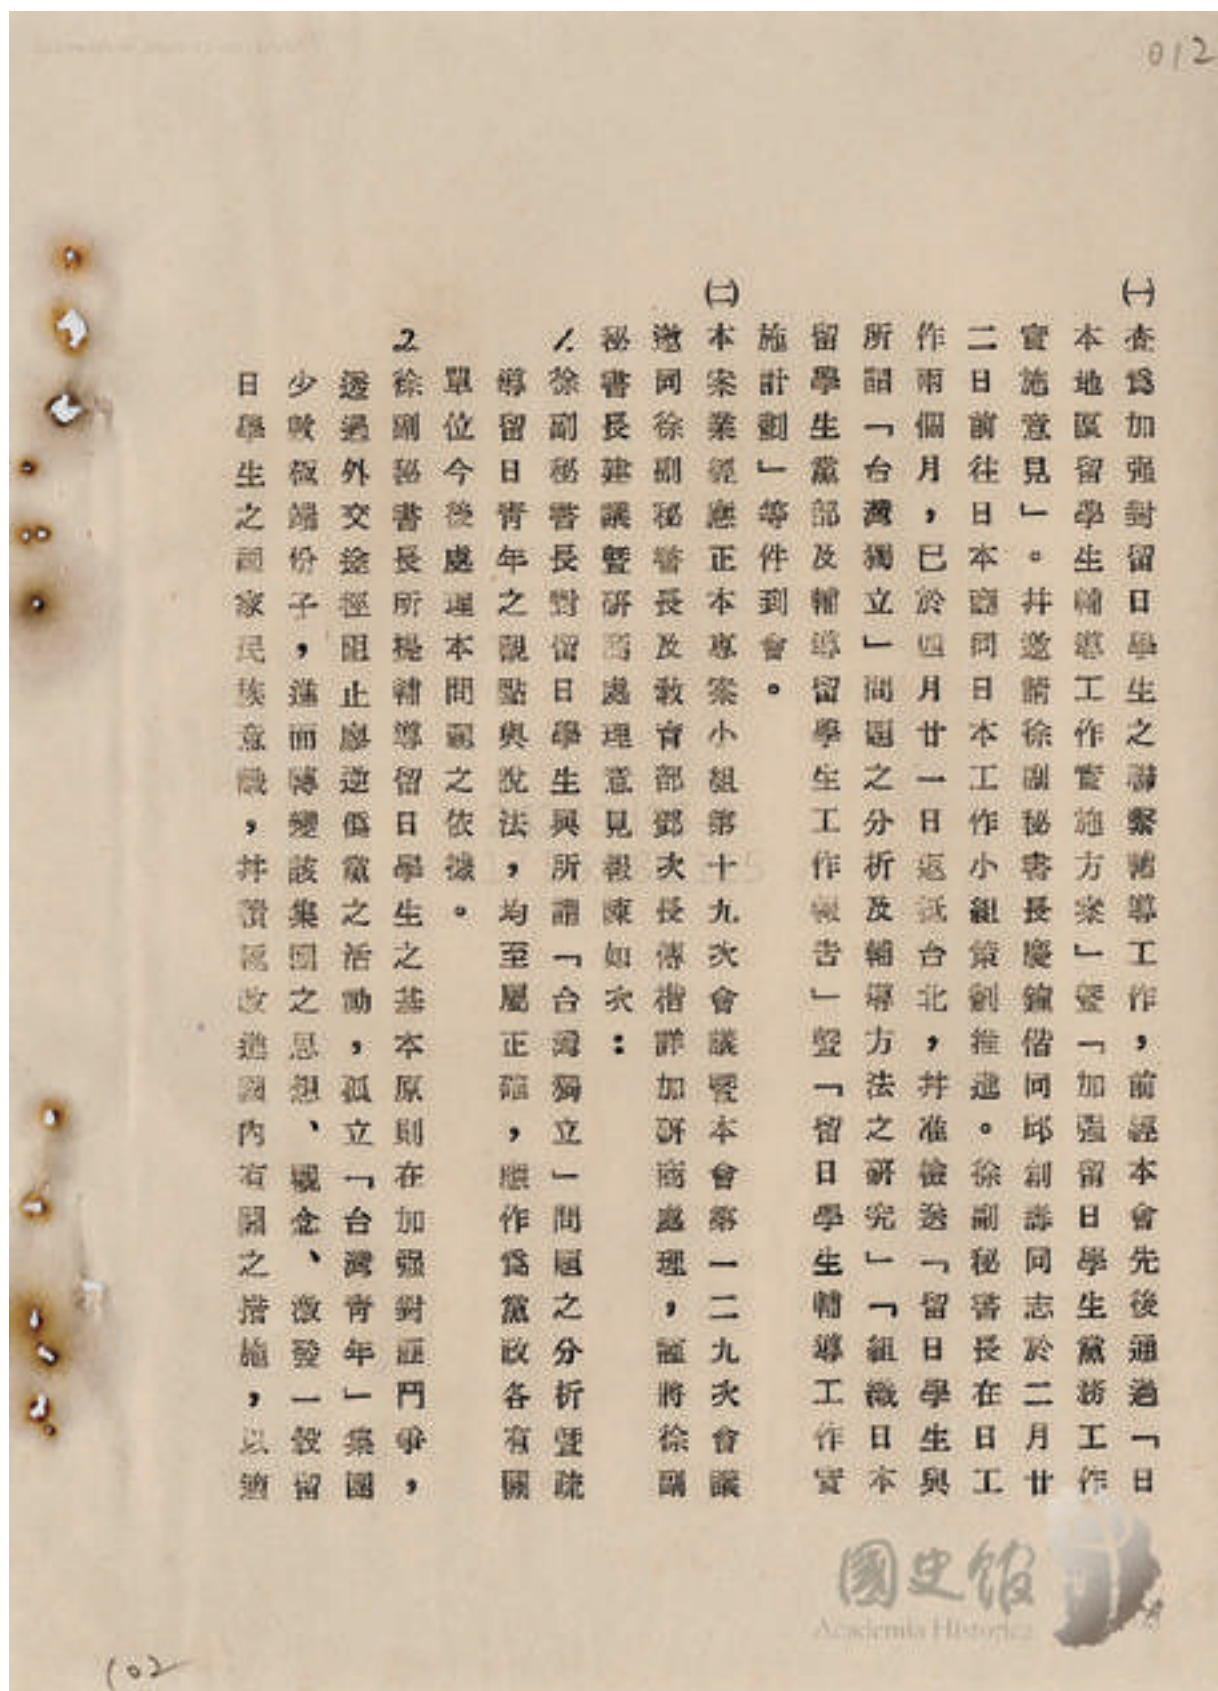 012
㈠查爲加强對留日學生之聯繫輔導工作，前經本會先後通過「日
本地區留學生輔導工作實施方案」暨「加强留日學生黨務工作
實施意見」。并邀請徐副秘書長慶鐘偕同邱創壽同志於二月廿
二日前往日本商同日本工作小組策劃推進。徐副秘書長在日工
作兩個月，已於四月廿一日返抵台北，并准檢送「留日學生與
所謂「台灣獨立」問題之分析及輔導方法之研究」「組織日本
留學生黨部及輔導留學生工作報告」暨「留日學生輔導工作實
施計劃」等件到會。
㈡本案業經應正本專案小組第十九次會議暨本會第一二九次會議
邀同徐副秘書長及教育部鄧次長傳楷詳加研商處理，謹將徐副
秘書長建議暨研商處理意見報陳如次：
1.徐副秘書長對留日學生與所謂「台灣獨立」問題之分析暨疏
導留日青年之觀點與說法，均至屬正確，應作爲黨政各有關
單位今後處理本問題之依據。
2徐副秘書長所提輔導留日學生之基本原則在加强對匪鬥爭，
透過外交途徑阻止廖逆僞黨之活動，孤立「台灣青年」集團
少數極端份子，進而轉變該集團之思想、觀念、激發一般留
日學生之國家民族意識，并積極改進國內有關之措施，以適
國史館
Academia Historica
102